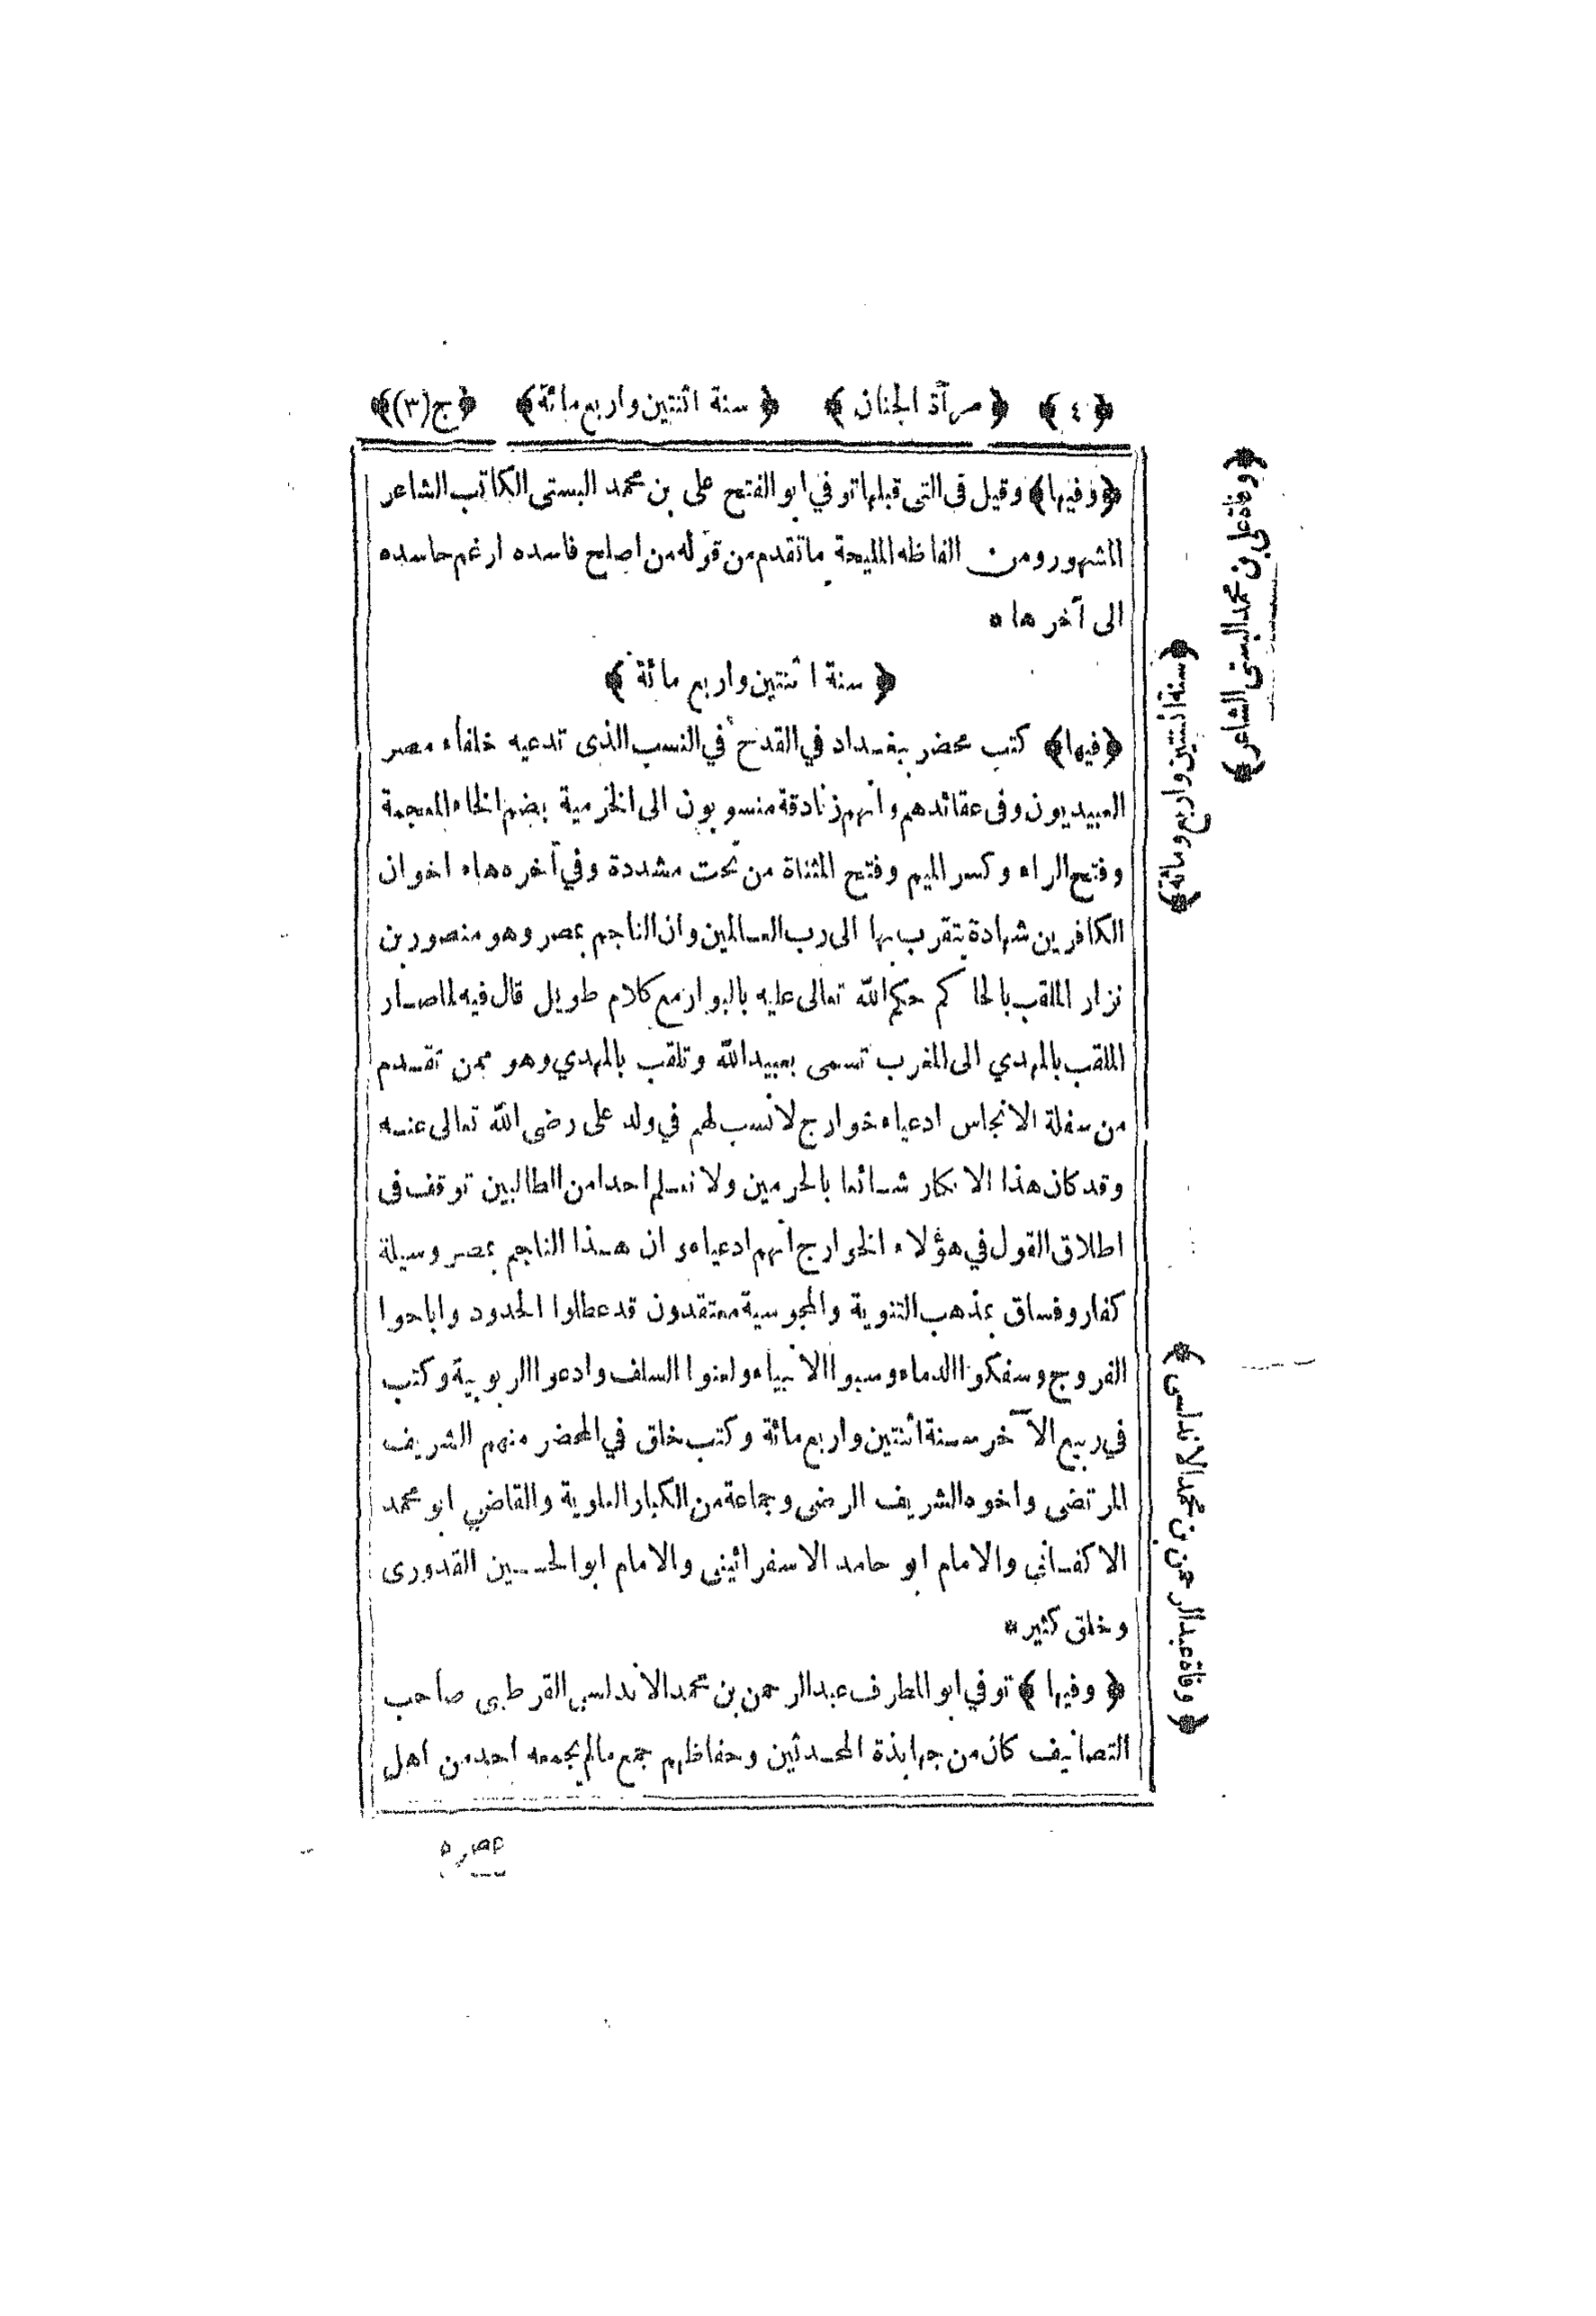 ﴿ ٤ ﴾ ﴿ مرآة الجنان ﴾ ﴿ سنة اثنتين واربع مائة ﴾ ﴿ ج (٣) ﴾
﴿ وفيها ﴾ وقيل فى التى قبلها توفي ابو الفتح على بن محمد البستى الكاتب الشاعر
المشهور ومن الفاظه المليحة ماتقدم من قوله من اصلح فاسده ارغم حاسده
الى آخر ها *
﴿ سنة اثنتين واربع مائة ﴾
﴿ فيها ﴾ كتب محضر ببغداد في القدح في النسب الذى تدعيه خلفاء مصر
العبيديون وفى عقائدهم وانهم زنادقة منسوبون الى الخرمية بضم الخاء المعجمة
وفتح الراء وكسر الميم وفتح المثناة من تحت مشددة وفي آخره هاء اخوان
الكافرين شهادة يتقرب بها الى رب العالمين وان الناجم بمصر وهو منصور بن
نزار الملقب بالحاكم حكم الله تعالى عليه بالبوار مع كلام طويل قال فيه لما صار
الملقب بالمهدي الى المغرب تسمى بعبيد الله وتلقب بالمهدي وهو ممن تقدم
من سفلة الانجاس ادعياء خوارج لا نسب لهم في ولد على رضى الله تعالى عنه
وقد كان هذا الانكار شائعا بالحرمين ولا نعلم احدا من الطالبين توقف فى
اطلاق القول في هؤلاء الخوارج انهم ادعياء وان هذا الناجم بمصر وسيلة
كفار وفساق بمذهب التنوية والمجوسية معتقدون قد عطلوا الحدود واباحوا
الفروج وسفكوا الدماء وسبوا الانبياء ولعنوا السلف وادعوا الربوبية وكتب
في ربيع الآخر سنة اثنتين واربع مائة وكتب خلق في المحضر منهم الشريف
المرتضى واخوه الشريف الرضى وجماعة من الكبار العلوية والقاضي ابو محمد
الاكفانى والامام ابو حامد الاسفرائينى والامام ابو الحسين القدورى
وخلق كثير *
﴿ وفيها ﴾ توفي ابو المطرف عبد الرحمن بن محمد الاندلسى القرطبى صاحب
التصانيف كان من جهابذة المحدثين وحفاظهم جمع مالم يجمعه احد من اهل
عصره
﴿ وفاة على بن محمد البستى الشاعر ﴾
﴿ سنة اثنتين واربع ومائة ﴾
﴿ وفاة عبد الرحمن بن محمد الاندلسى ﴾